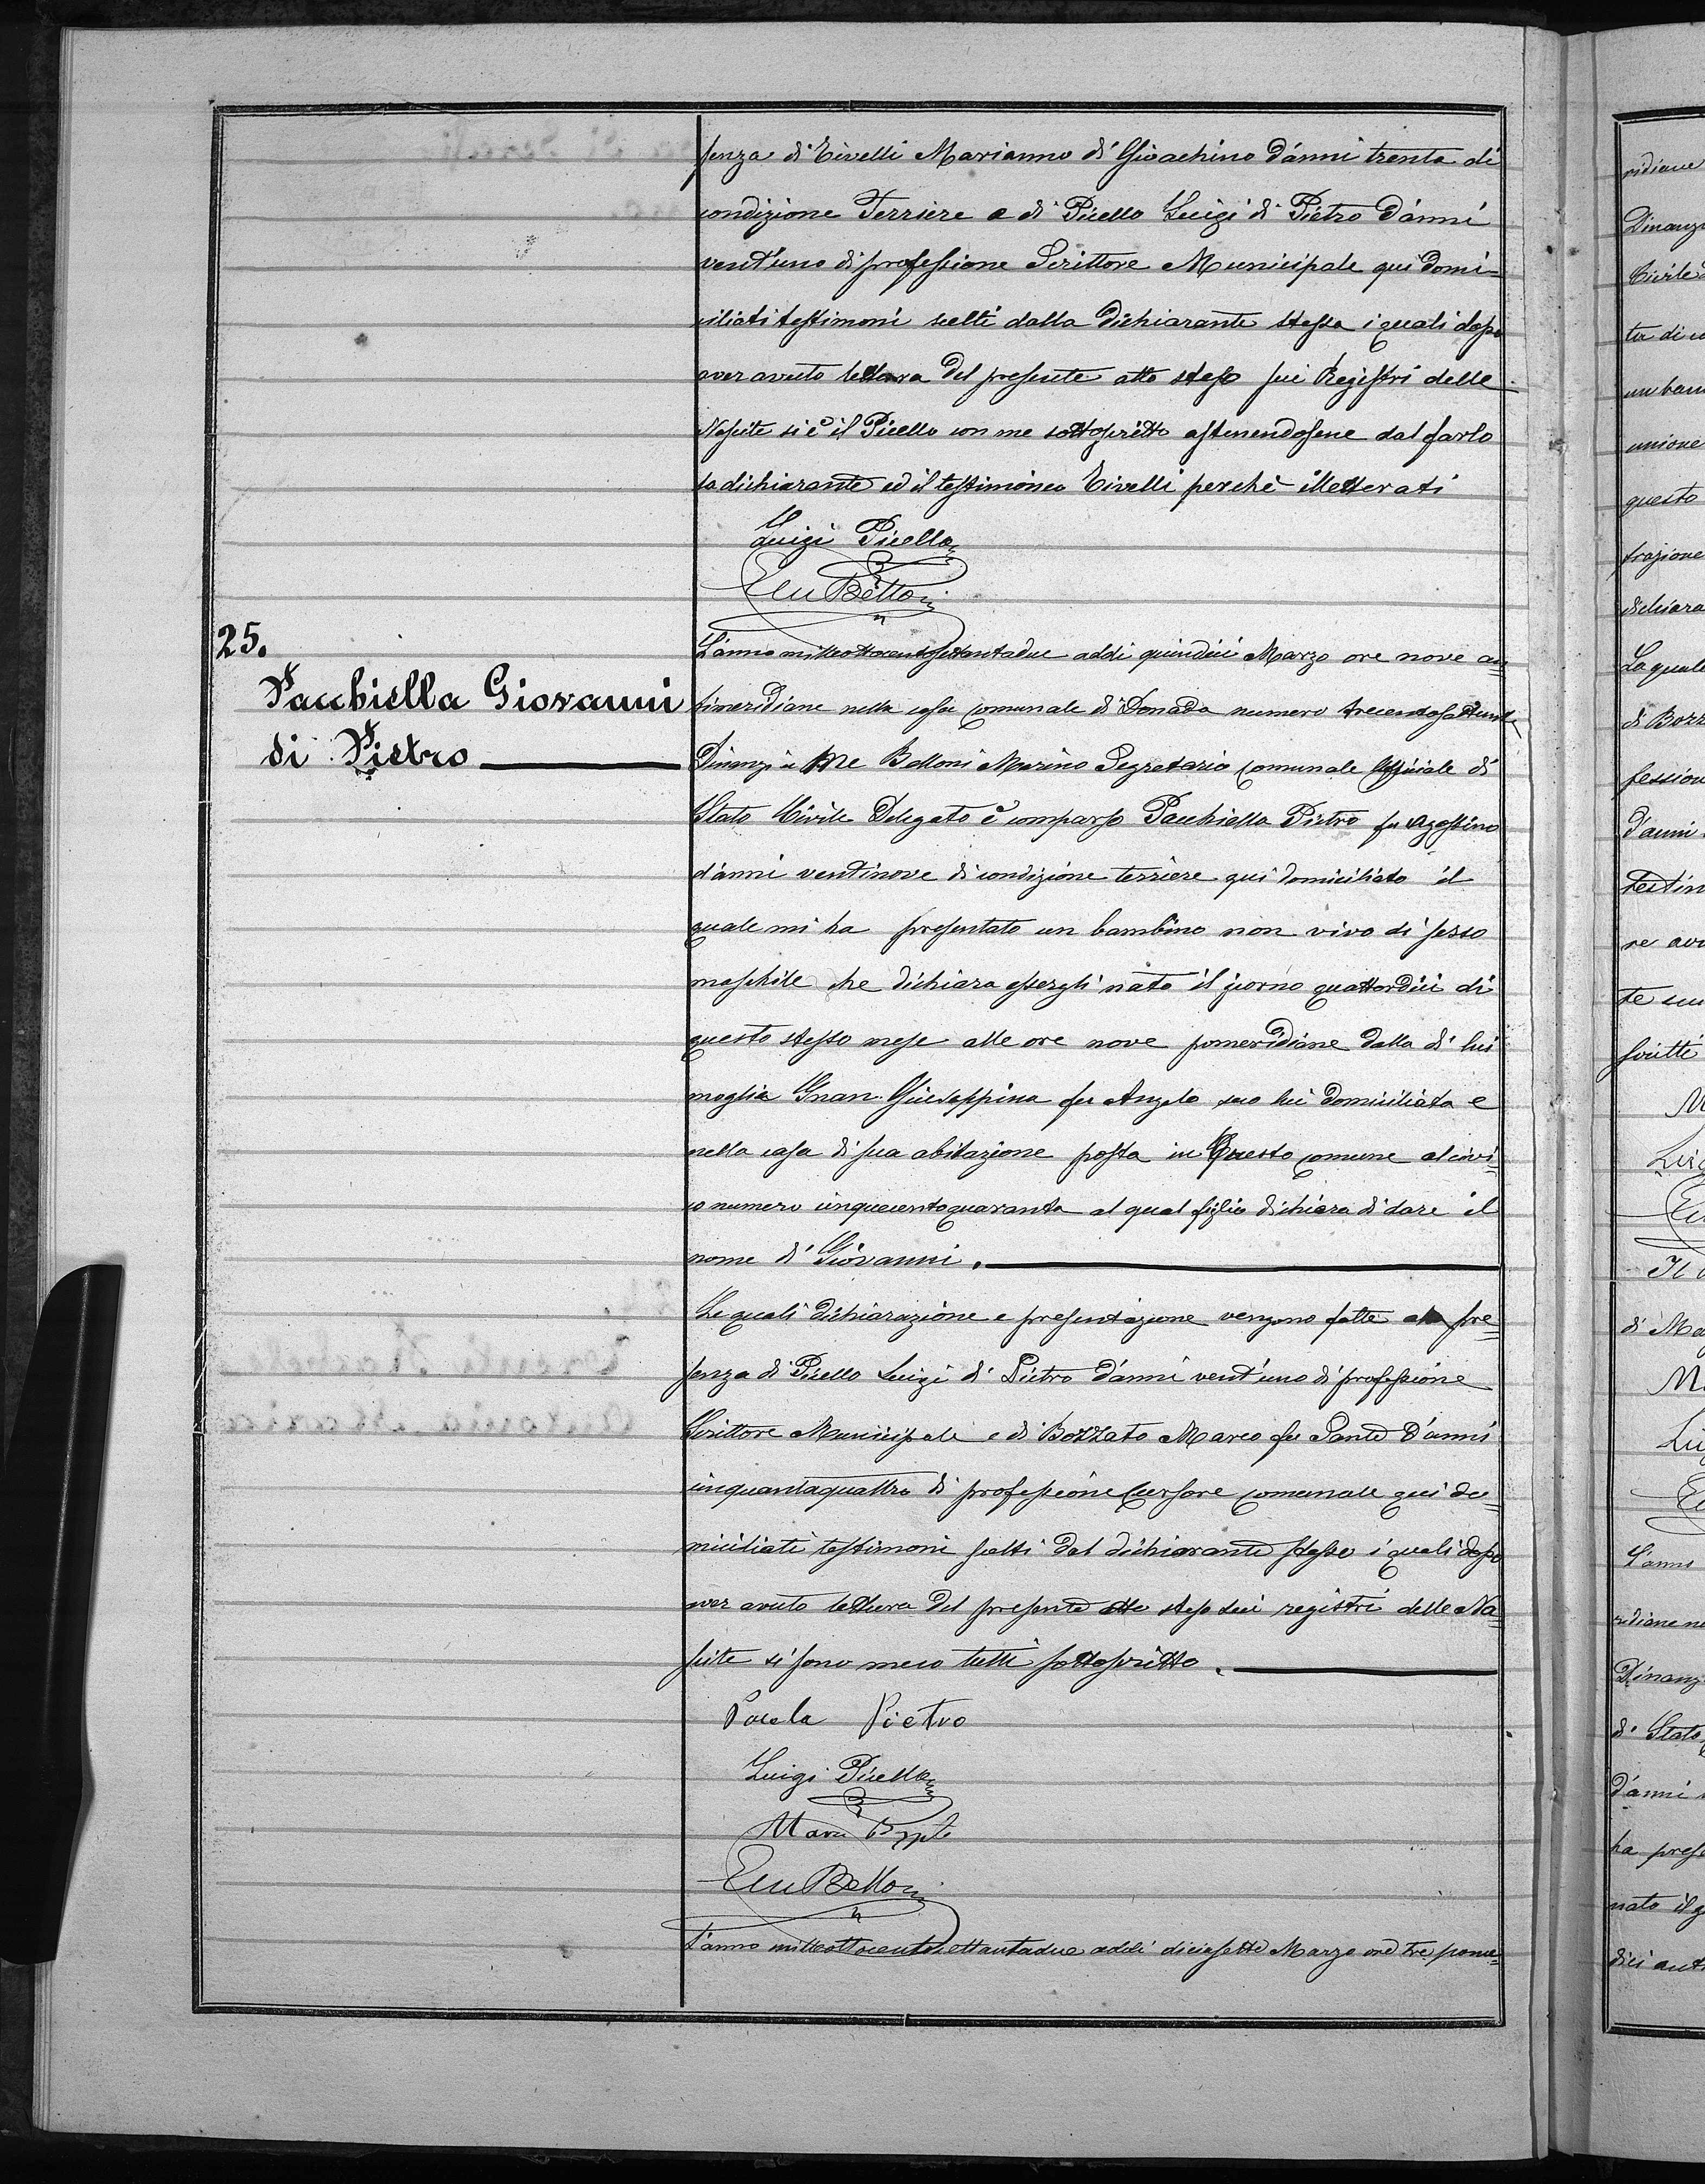 senza di Civelli Marianno di Gioachino d'anni trenta di
condizione Terriere e di Picello Luigi di Pietro d'anni
vent'uno di professione Scrittore Municipale qui domi=
ciliati testimoni scelti dalla dichiarante stessa i quali dopo
aver avuto lettura del presente atto steso sui Registri delle
Nascite si è il Picello con me sottoscritto astenendosene dal farlo
la dichiarante ed il testimonio Civelli perchè illetterati
Luigi Picello
Belloni
25.
Pacchiella Giovanni
di Pietro
L'anno milleottocentosettantadue addi quindici Marzo ore nove an
timeridiane nella casa comunale di Donada numero trecento
Dinanzi a Me Belloni Marino Segretario comunale Uffiziale di
Stato Civile Delegato è comparso Pacchiella Pietro fu Agostino
d'anni ventinove di condizione terriere qui domiciliato il
quale mi ha presentato un bambino non vivo di sesso
maschile che dichiara essergli nato il giorno quattordici di
questo stesso mese alle ore nove pomeridiane dalla di lui
moglie Gnan Giuseppina fu Angelo seco lui domiciliata e
nella casa di sua abitazione posta in Questo comune al civi=
co numero cinquecentoquaranta al qual figlio dichiara di dare il
nome di Giovanni.
Le quali dichiarazione e presentazione vengono fatte alla pre=
senza di Picello Luigi di Pietro d'anni vent'uno di professione
Scrittore Municipale e di Bozzato Marco fu Sante d'anni
cinquantaquattro di professione Cursore comunale qui do=
miciliati testimoni scelti dal dichiarante stesso i quali dopo
aver avuto lettura del presente atto steso sui registri delle Na=
scite si sono meco tutti sottoscritto.
Pietro
Luigi Picello
Belloni
L'anno milleottocentosettantadue addi diciasette Marzo ore tre pome=
ridiane
Dinanzi
Civile
ta di
un bam
unione
questo
frazione
dichiara
La quale
di Bozz
fession
d'anni
testim
re avu
te
scritti
Luig
di Ma
L'anno
ridiane ne
Dinanz
di Stato
d'anni
ha pres
nato il g
dici ant